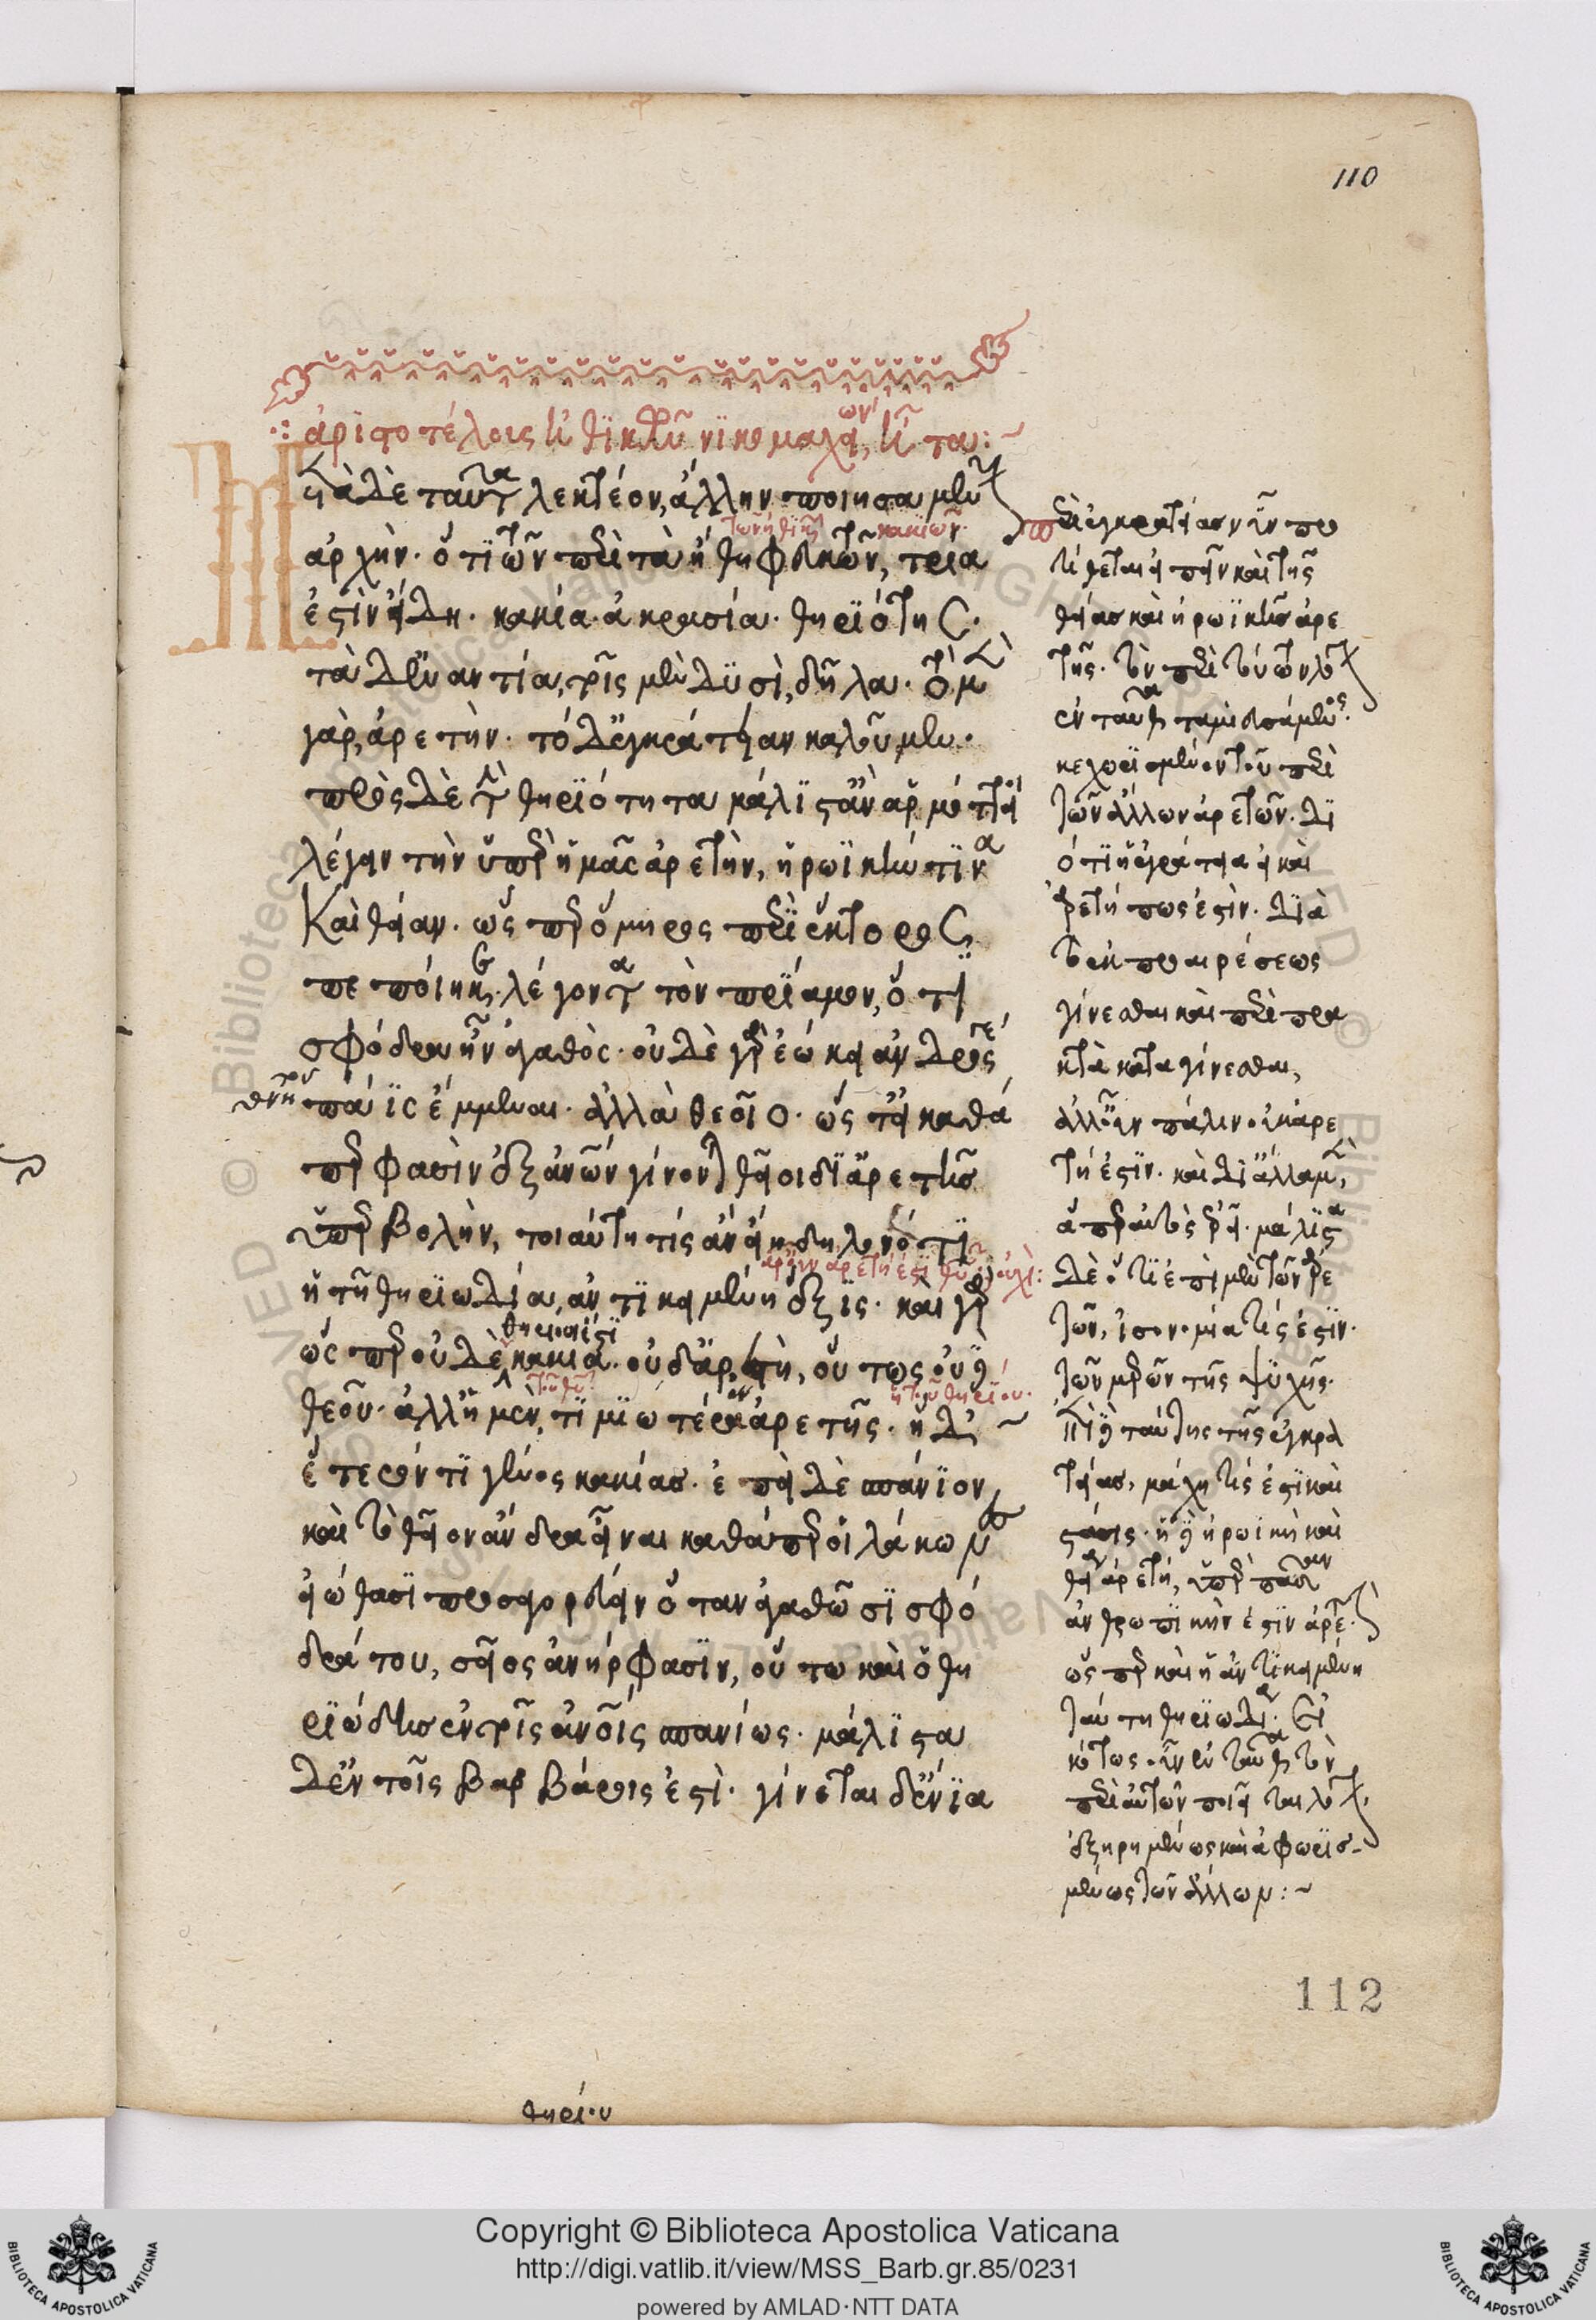 110
ἀριστοτέλους ἠθικῶν νικομαχείων, η τον:~
Μετὰ δὲ ταῦτα λεκτέον, ἄλλην ποιησαμένους
ἀρχήν. ὅτι τῶν περὶ τὰ ἤθη φευκτῶν, τρία
τῶν ἠθικῶν κακιῶν
ἐστὶν εἴδη. κακία. ἀκρασία. θηριότης.
τὰ δ' ἐναντία, τοῖς μὲν δυσὶ, δῆλα. τὸ μὲν
γὰρ, ἀρετὴν. τὸ δ' ἐγκράτειαν καλοῦμεν.
πρὸς δὲ τὴν θηριότητα μάλιστ' ἂν ἁρμόττοι
λέγειν τὴν ὑπὲρ ἡμᾶς ἀρετὴν, ἡρωϊκήν τινα
καὶ θείαν. ὥσπερ ὅμηρος περὶ ἕκτορος
πεποίηκε λέγοντα τὸν πρίαμον, ὅτι
σφόδρα ἦν ἀγαθὸς. οὐδὲ γὰρ ἐῴκει ἀνδρός γε
θνητοῦ πάϊς ἔμμεναι. ἀλλὰ θεοῖο. ὥστ' εἰ καθά
περ φασὶν ἐξ ἀνθρώπων γίνονται θεοὶ δι' ἀρετῆς
ὑπερβολὴν, τοιαύτη τίς ἂν εἴη δηλονότι
ἡ τῇ θηριώδει, ἀντικειμένη ἕξις. καὶ γὰρ
ὥσπερ οὐδὲ κακία. οὐδ' ἀρετὴ, οὕτως οὐδὲ
θηρίου ἐστὶ
θεοῦ. ἀλλ' ἡ μὲν, τιμιώτερον ἀρετῆς. ἡ δ'
τοῦ θεοῦ
ἡ τοῦ θηρίου.
ἕτερόν τι γένος κακίας. ἐπεὶ δὲ σπάνιον
καὶ τὸ θεῖον ἄνδρα εἶναι καθάπερ οἱ λάκωνες
εἰώθασι προσαγορεύειν ὅταν ἀγασθῶσι σφό
δρα του, σεῖος ἀνήρ φασιν, οὕτω καὶ ὁ θη
ριώδης ἐν τοῖς ἀνθρώποις σπανίως. μάλιστα
δ' ἐν τοῖς βαρβάροις ἐστὶ. γίνεται δ' ἔνια
θηρίου
περὶ ἐγκρατείας νῦν προ
τίθεται εἰπεῖν καὶ τῆς
θείας καὶ ἡρωϊκῆς ἀρε
τῆς. τὸν περὶ τούτων λόγον
ἐν ταῦθα ταμιευσάμενος.
κεχωρισμένον τοῦ περὶ
τῶν ἄλλων ἀρετῶν. δι
ότι ἡ ἐγκράτεια εἰ καὶ
ἀρετή πως ἐστὶν. διὰ
τὸ ἐκ προαιρέσεως
γίνεσθαι καὶ περὶ πρα
κτὰ καταγίνεσθαι,
ἀλλ' οὖν πάλιν οὐκ ἀρε
τή ἐστιν. καὶ δι' ἄλλα μὲν,
ἅπερ αὐτὸς ἐρεῖ. μάλιστα
δὲ ὅτι ἐπὶ μὲν τῶν ἀρε
τῶν, ἰσονομία τίς ἐστιν.
τῶν μερῶν τῆς ψυχῆς.
ἐπὶ δὲ ταύτης τῆς ἐγκρα
τείας, μάχη τίς ἐστι καὶ
στάσις. ἡ δὲ ἡρωϊκὴ καὶ
θεία ἀρετή, ὑπὲρ πᾶσαν
ἀνθρωπικὴν ἐστιν ἀρετὴν.
ὥσπερ καὶ ἡ ἀντικειμένη
ταύτῃ θηριωδία. εἰ
κότως οὖν ἐνταῦθα τὸν
περὶ αὐτῶν ποιεῖται λόγον,
ἐξῃρημένως καὶ ἀφωρισ
μένως τῶν ἄλλων:~
112
Copyright © Biblioteca Apostolica Vaticana
http://digi.vatlib.it/view/MSS_Barb.gr.85/0231
powered by AMLAD·NTT DATA